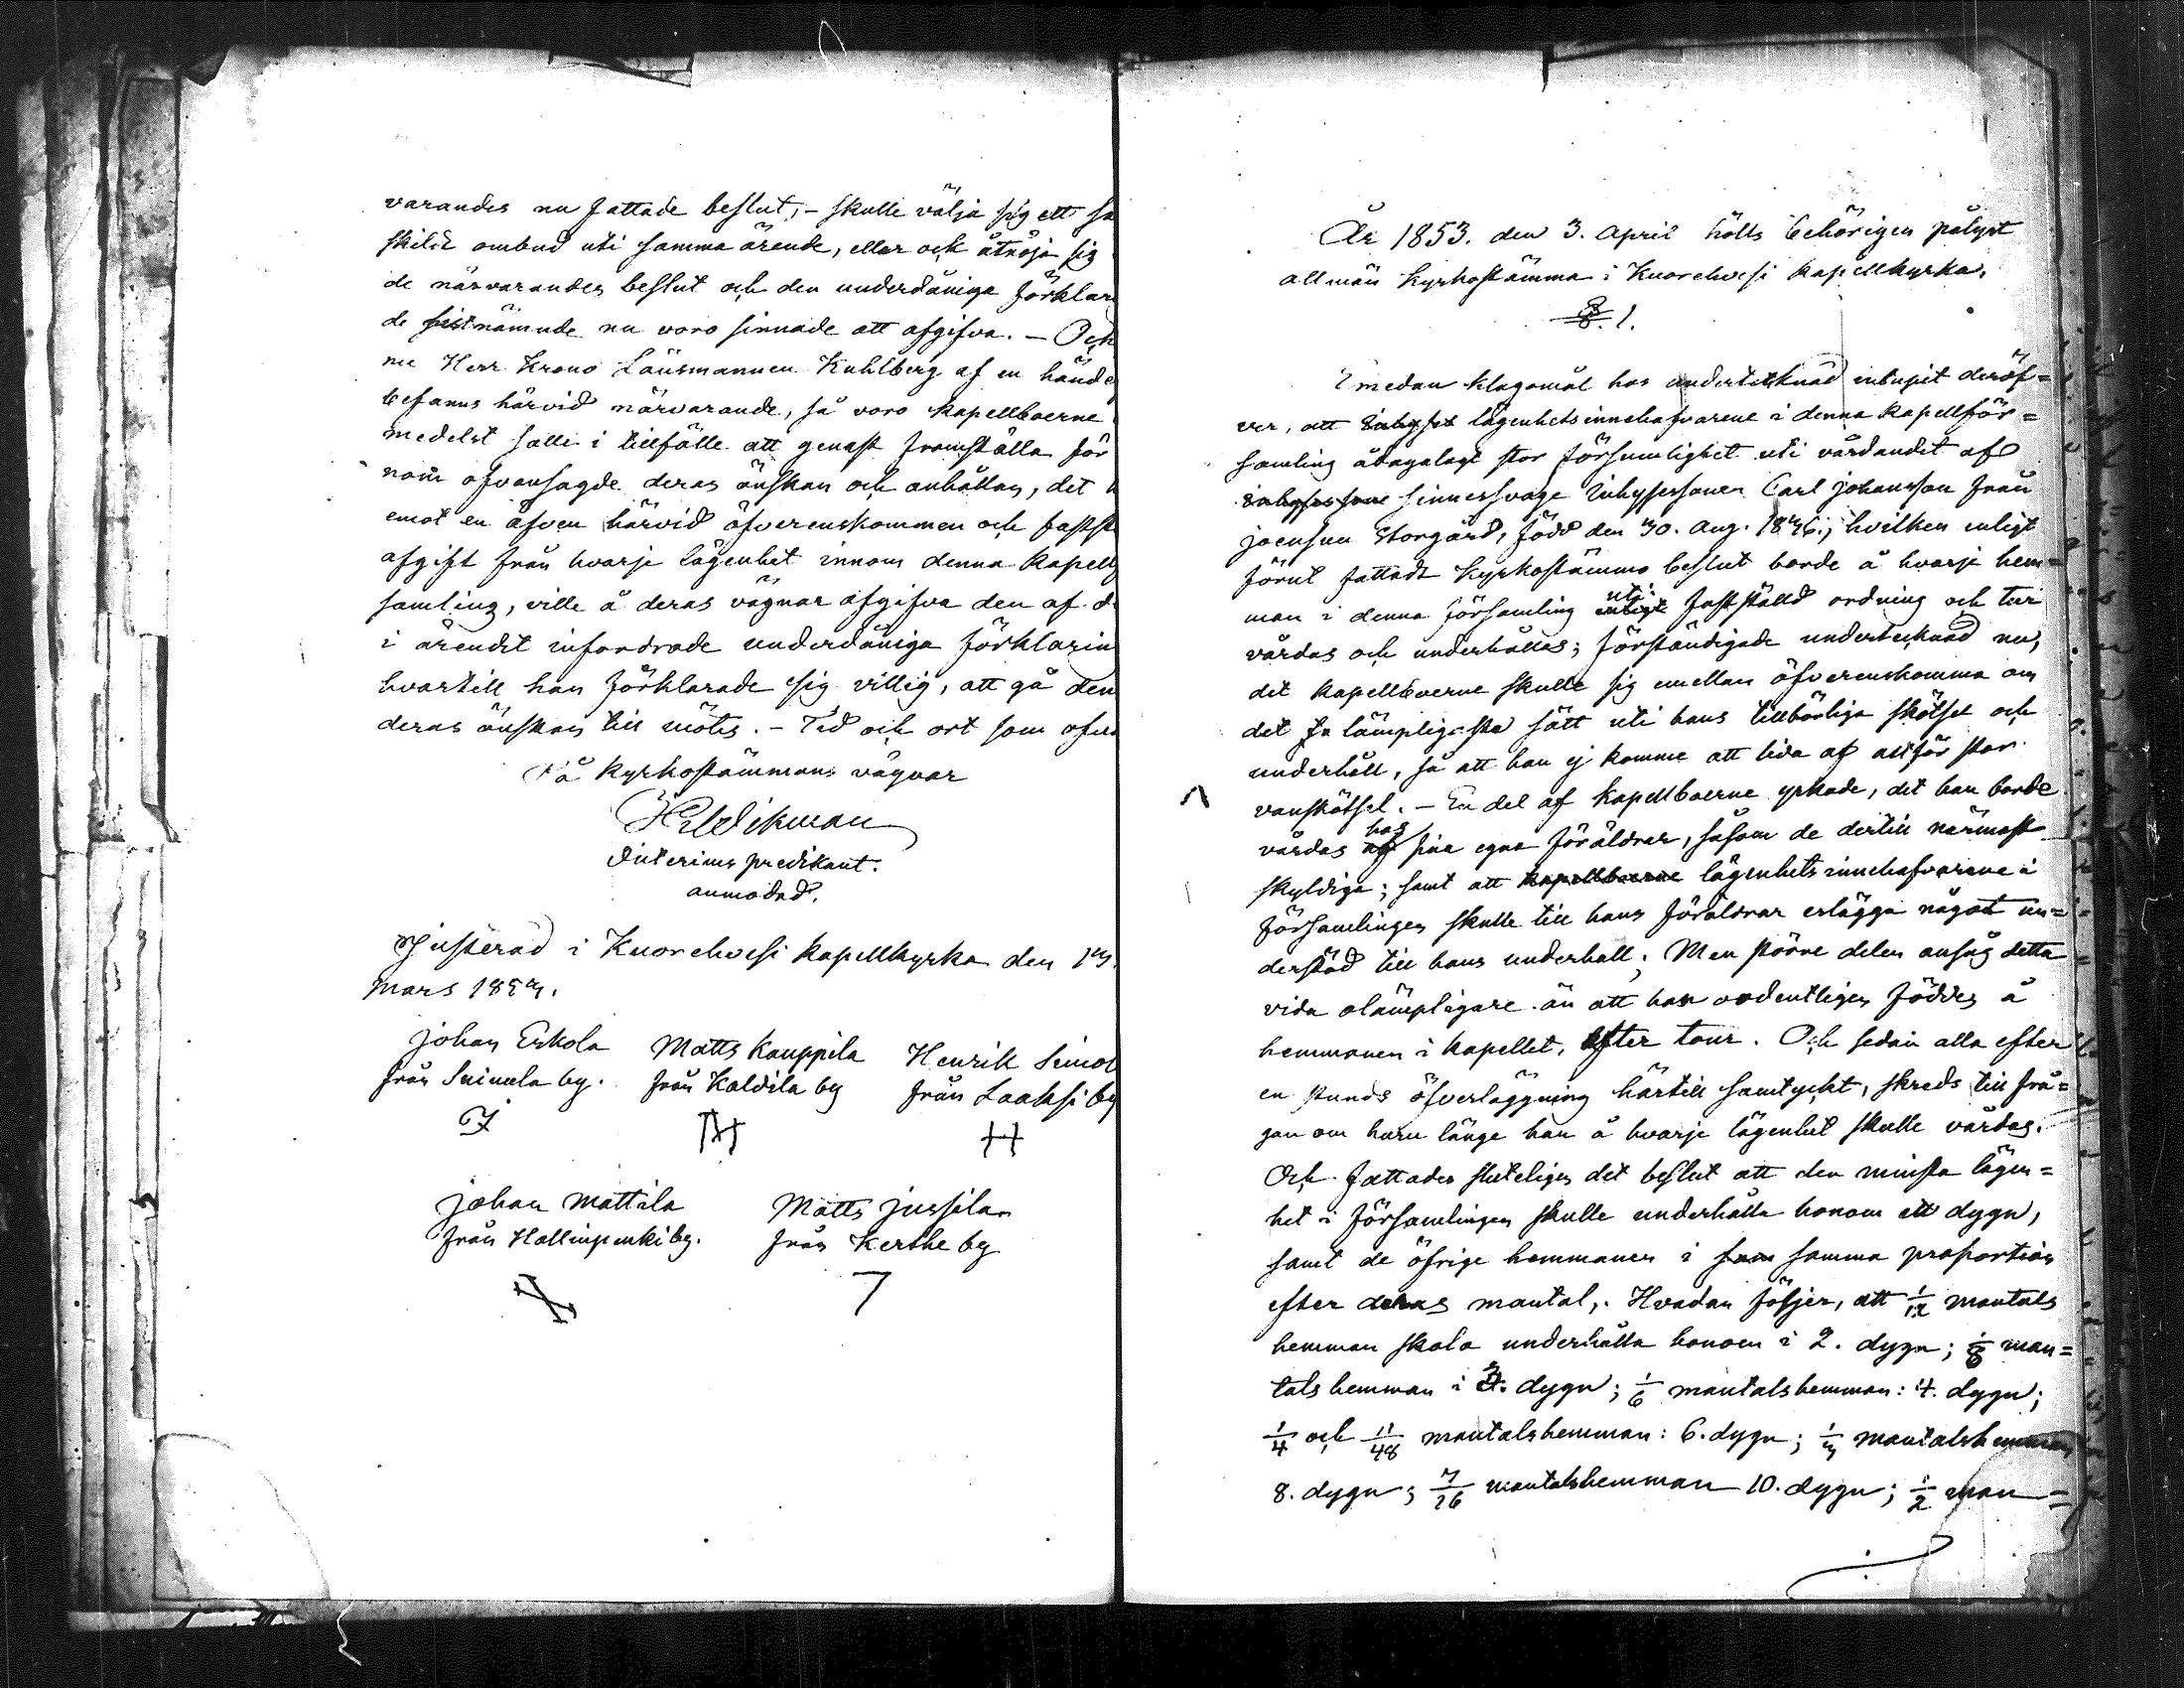 varandes nu fattade beslut, – skulle välja sig ett sä
skildt ombud uti samma ärende, eller ock åtnöja sig
de närvarandes beslut och den underdåniga förklar
de sistnämnde nu voro sinnade att afgifva. – Och
nu Herr Krono Länsmannen Kuhlberg af en hände
befanns härvid närvarande, så voro kapellboerne
medelst satte i tillfälle att genast framställa för
nom ofvansagde deras önskan och anhållan, det
emot en äfven härvid öfverenskommen och fastst
afgift från hvarje lägenhet innom denna Kapell
samling, ville å deras vägnar afgifva den af d
i ärendet infordrade underdåniga förklarin
hvartill han förklarade sig villig, att gå den
deras önskan till mötes. – Tid och ort som ofvan
På Kyrkostämmans vägnar
Widikman
Interims predikant.
anmodad.
Justerad i Kuorehvesi kapellkyrka den
Mars 1853.
Johan Eskola Matts Kauppila Henrik Simol
från Suinula by. från Kaldila by från Laaksi by
Johan Mattila Matts Jussila
från Hallinpenki by. från Kerthe by
År 1853. den 3. April hölls behörigen pålyst
allmän Kyrkostämma i Kuorehvesi kapellkyrka.
§. 1.
Emedan klagomål hos undertecknad inlupit deröf=
ver, att lägenhetsinnehafvarene i denna kapellför=
samling ådagalagt stor försumlighet uti vårdandet af
sinnessvage Inhysessonen Carl Johansson från
Joensuu Storgård, född den 30. Aug. 1836., hvilken enligt
förut fattadt Kyrkostämmo beslut borde å hvarje hem=
man i denna församling enligt uti fastställd ordning och tur
vårdas och underhållas; förständigade undertecknad nu,
det kapellboerne skulle sig emellan öfverenskomma om
det lämpligaste sätt uti hans tillbörliga skötsel och
underhåll, så att han ej komme att lida af alltför stor
vanskötsel. – En del af Kapellboerne yrkade, det han borde
vårdas af hos sina egna föräldrar, såsom de dertill närmast
skyldiga; samt att kapellboerne lägenhets innehafvarene i
församlingen skulle till hans föräldrar erlägga något un=
derstöd till hans underhåll; Men större delen ansåg detta
vida olämpligare än att han ordentligen föddes å
hemmanen i kapellet, efter tour. Och sedan alla efter
en stunds öfverläggning härtill samtyckt, skreds till frå=
gan om huru länge han å hvarje lägenhet skulle vårdas.
Och fattades sluteligen det beslut att den minsta lägen=
het i församlingen skulle underhålla honom ett dygn,
samt de öfrige hemmanen i sam samma proportion
efter deras mantal,. Hvadan följer, att 1/12 mantals
hemman skola underhålla honom i 2. dygn; 1/8 man=
tals hemman i 3. dygn; 1/6 mantalshemman: 4. dygn;
1/4 och 11/48 mantalshemman: 6. dygn; 1/3 mantalshemman
8. dygn; 7/16 mantalshemman 10. dygn; 1/2 man=